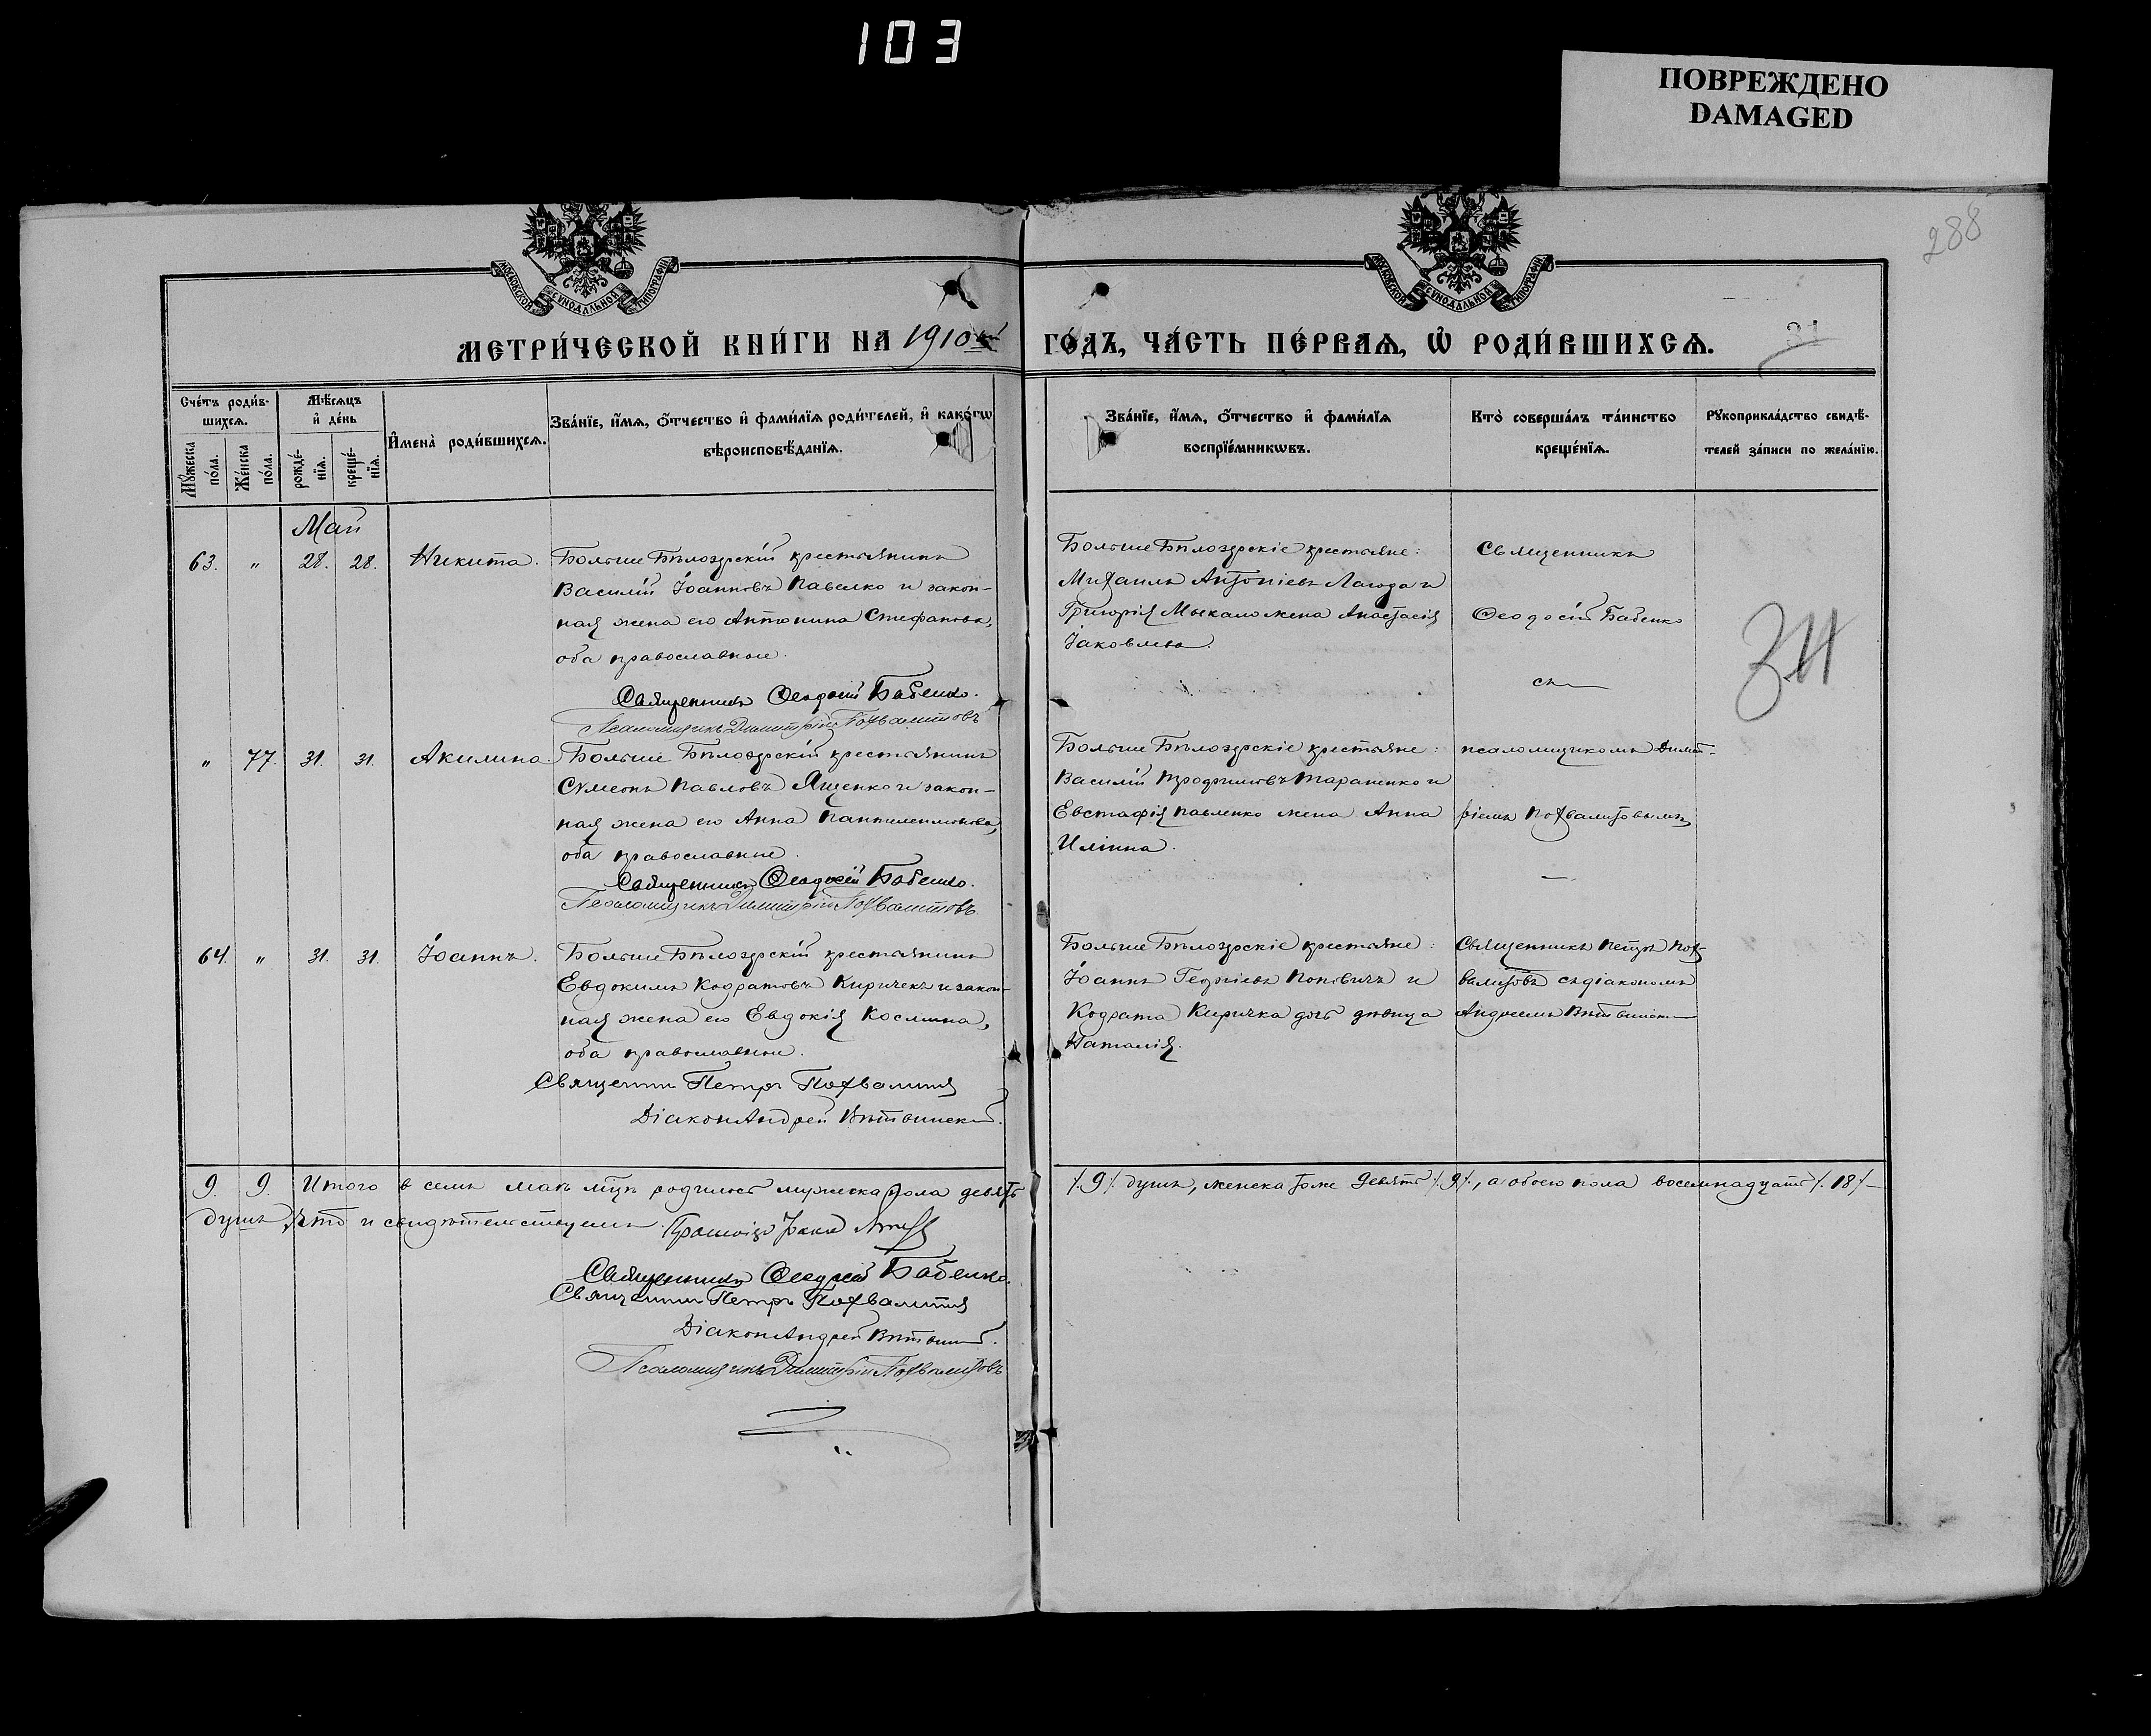 103
ПОВРЕЖДЕНО
DAMAGED
288
МОСКОВСКОЙ СѴНОДАЛЬНОЙ ТИПОГРАФІИ
МОСКОВСКОЙ СѴНОДАЛЬНОЙ ТИПОГРАФІИ
МЕТРИ́ЧЕСКОЙ КНИ́ГИ НА 1910 ГО́ДЪ, ЧА́СТЬ ПЕ́РВАѦ, Ѡ҆ РОДИ́ВШИХСѦ.
31
Сче́тъ роди́в-
шихсѧ.
Мꙋ́жеска по́ла.
Же́нска по́ла.
Мѣ́сѧцъ
и҆ де́нь
рожде́-нїѧ.
креще́-нїѧ.
И҆мена̀ роди́вшихсѧ.
Зва́нїе, и҆́мѧ, ѻ҆́тчество и҆ фами́лїѧ роди́телей, и҆ како́гѡ
вѣроисповѣ́данїѧ.
Зва́нїе, и҆́мѧ, ѻ҆́тчество и҆ фами́лїѧ
воспрїе́мникѡвъ.
Кто̀ соверша́лъ та́инство
креще́нїѧ.
Рꙋкоприкла́дство свидѣ́-
телей за́писи по жела́нїю.
Май
63. " 28. 28. Никита.
Больше Бѣлозерскій крестьянинъ
Василій Іоанновъ Павелко и закон-
ная жена его Антонина Стефанова,
оба православные.
Священникъ Ѳеодосій Бабенко.
Псаломщикъ Димитрій Похвалитовъ
Больше Бѣлозерскіе крестьяне:
Михаилъ Антоніевъ Лагода и
Григорія Мыкало жена Анастасія
Іаковлева.
Священникъ
Ѳеодосій Бабенко
съ
34
" 77. 31. 31. Акилина.
Больше Бѣлозерскій крестьянинъ
Сѵмеонъ Павловъ Ященко и закон-
ная жена его Анна Пантелеимонова,
оба православные.
Священникъ Ѳеодосій Бабенко.
Псаломщикъ Димитрій Похвалитовъ
Больше Бѣлозерскіе крестьяне:
Василій Трофимовъ Тараненко и
Евстафія Павленко жена Анна
Иліина.
псаломщикомъ Димит-
ріемъ Похвалитовымъ
64. " 31. 31. Іоаннъ.
Больше Бѣлозерскій крестьянинъ
Евдокимъ Кодратовъ Киричекъ и закон-
ная жена его Евдокія Космина,
оба православные.
Священникъ Петръ Похвалитовъ
Діаконъ Андрей
Больше Бѣлозерскіе крестьяне:
Іоаннъ Георгіевъ Поповичъ и
Кодрата Киричка дочь девица
Наталія.
Священникъ Петръ Пох-
валитовъ съ діакономъ
Андреемъ
9. 9. Итого въ семъ маѣ мѣцѣ родилось мужеска пола девять /.9/. душъ, женска тоже девять /.9/., а обоего пола восемнадцать /.18/.
душъ, что и свидѣтельствуемъ.
Священникъ Ѳеодосій Бабенко.
Священникъ Петръ Похвалитовъ
Діаконъ Андрей
Псаломщикъ Димитрій Похвалитовъ